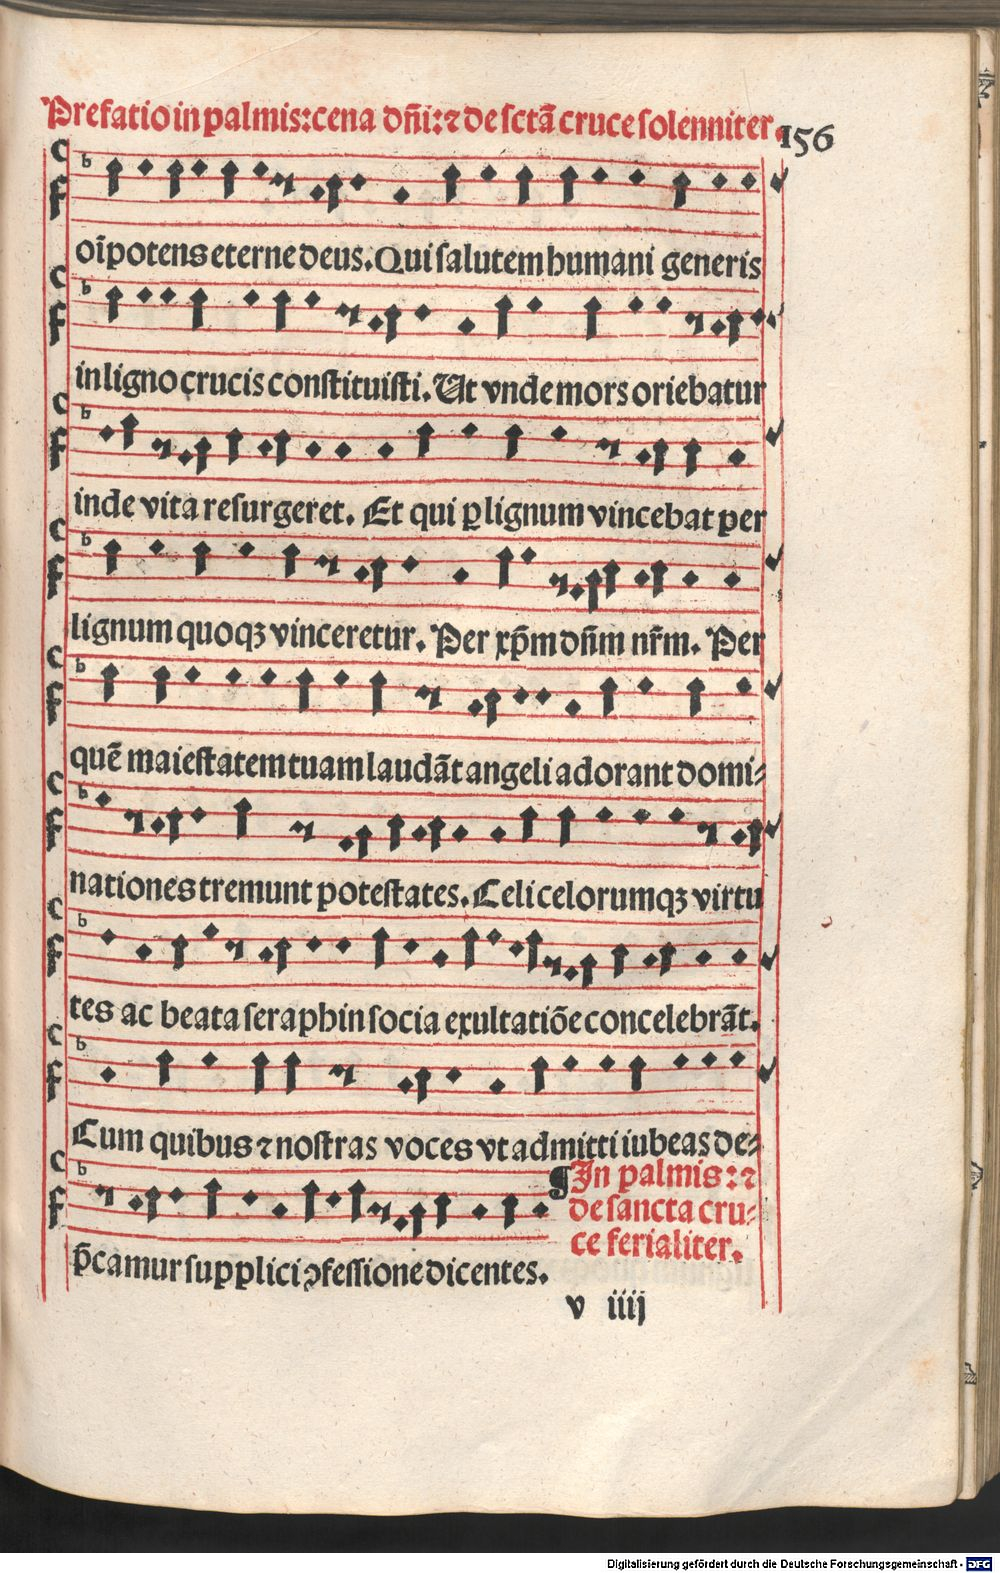 Prefatio in palmis: cena dñi: ⁊ de sctã cruce solenniter. 156
oĩpotens eterne deus. Qui salutem humani generis
in ligno crucis constituisti. Ut vnde mors oriebatur
inde vita resurgeret. Et qui ꝑ lignum vincebat per
lignum quoqꝫ vinceretur. Per xp̄m dñm nr̃m. Per
quẽ maiestatem tuam laudãt angeli adorant domi⸗
nationes tremunt potestates. Celi celorumqꝫ virtu
tes ac beata seraphin socia exultatiõe concelebrãt.
Cum quibus ⁊ nostras voces vt admitti iubeas de⸗
p̃camur supplici ꝯfessione dicentes.
¶ In palmis: ⁊
de sancta cru⸗
ce ferialiter.
v iiij
Digitalisierung gefördert durch die Deutsche Forschungsgemeinschaft - DFG